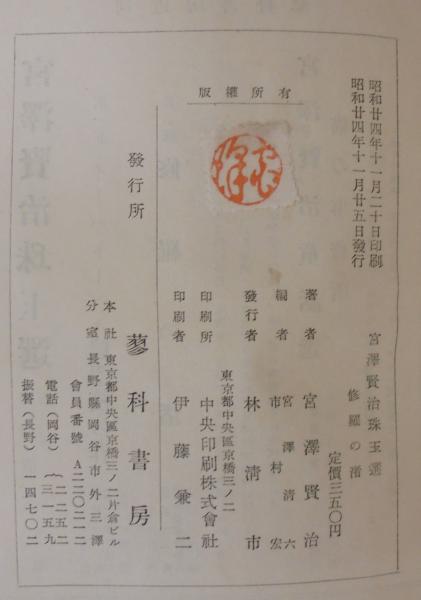 昭和廿四年十一月二十日印刷
昭和廿四年十一月廿五日發行
宮澤賢治珠玉選
修羅の渚
定價三五〇円
版權所有
著者 宮澤賢治
編者 宮澤清六
市村宏
發行者 林清市
東京都中央區京橋三ノ二
印刷所 中央印刷株式會社
印刷者 伊藤兼二
發行所 蓼科書房
本社 東京都中央區京橋三ノ二片倉ビル
分室 長野縣岡谷市外三澤
會員番號 A二二〇二一二
電話(岡谷) 二二五二
三一五九
振替(長野) 一四七〇二